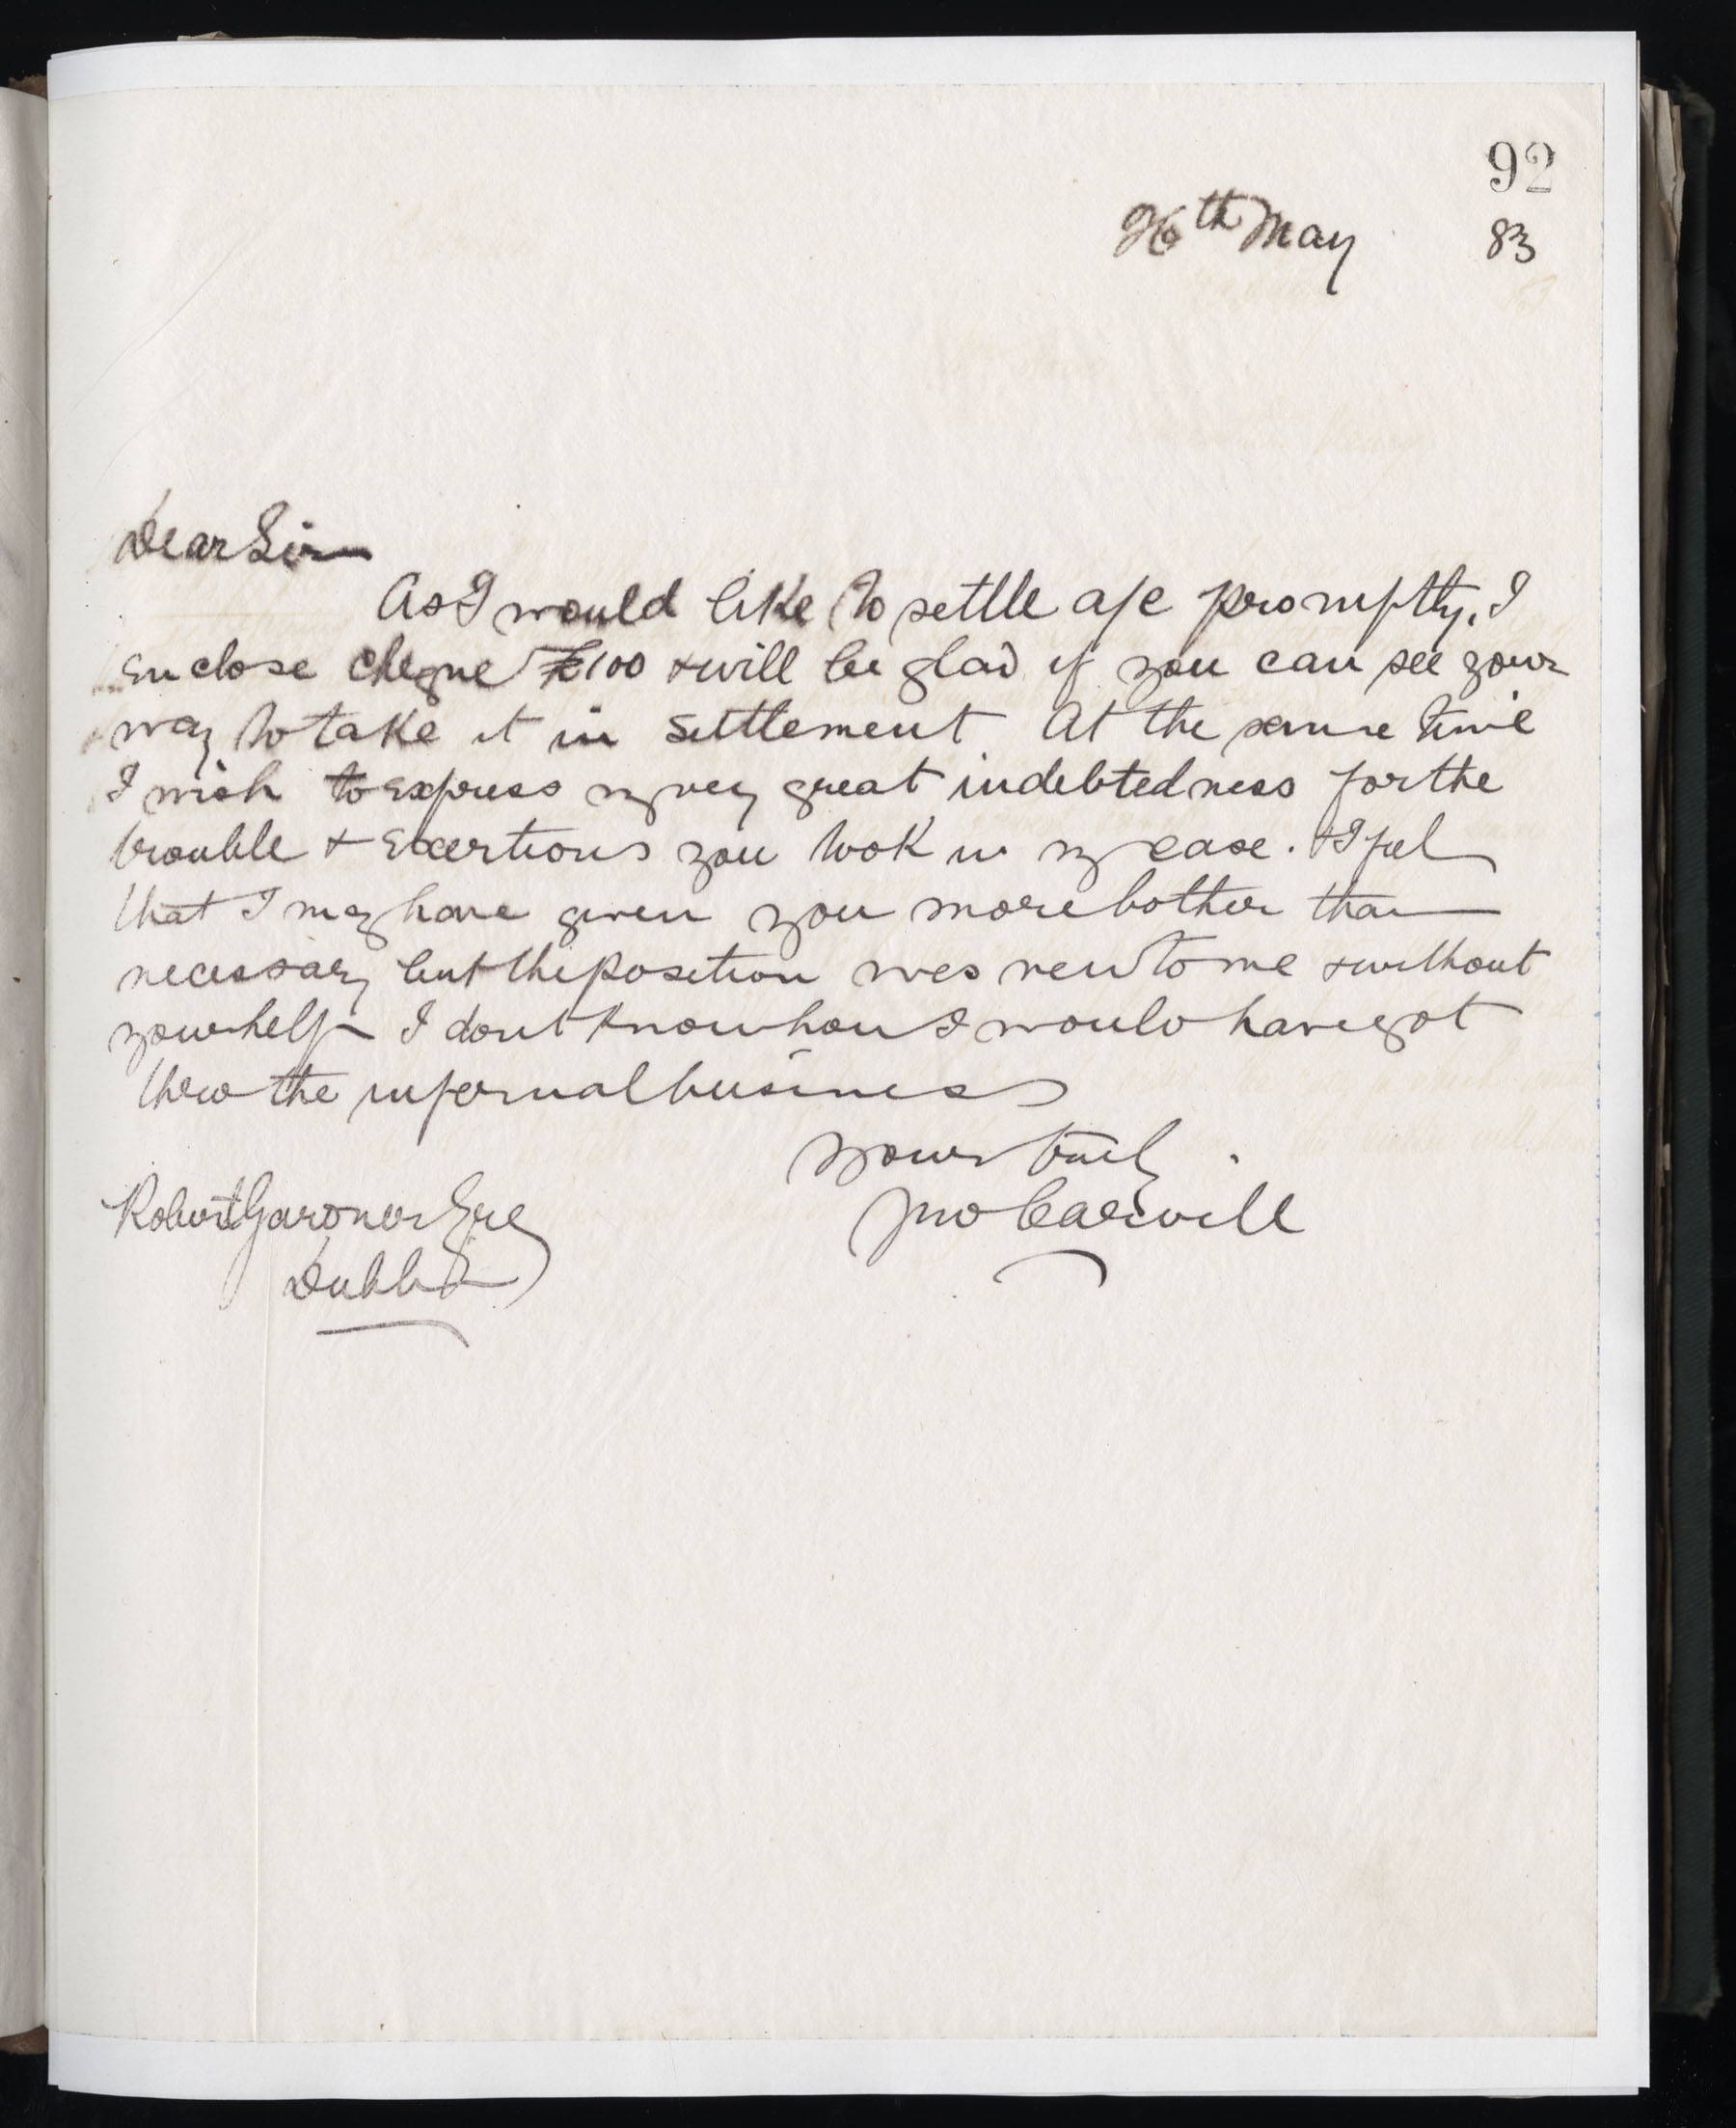 92
26th May 83
Dear Sir
As I would like to settle a/c promptly, I
enclose cheque £100 & will be glad if you can see your
way to take it in settlement. At the same time
I wish to express my very great indebtedness for the
trouble & exertions you took in my case. & I feel
that I may have given you more bother than
necessary but the position was new to me & without
your help I dont know how I would have got
thro the infernal business
Yours truly.
Jno Carvill
Robert Gardner Esq
Dublin